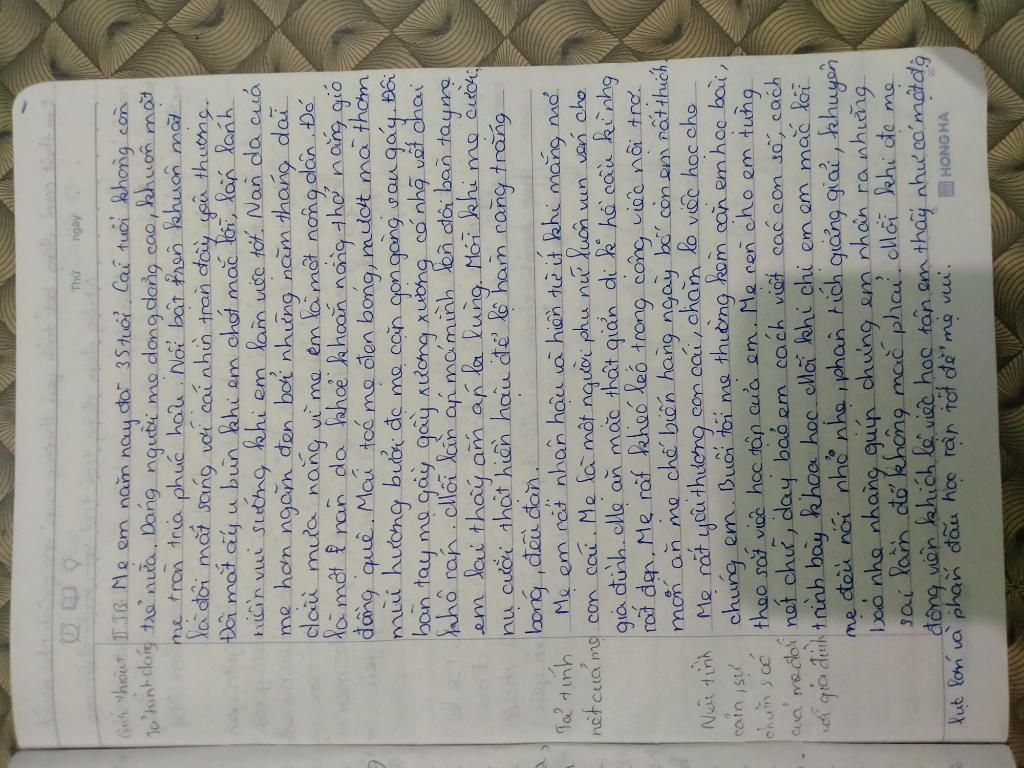 Thứ ngày
Giới thiệu
Tả hình dáng
II TB. Mẹ em năm nay đã 35 tuổi. Cái tuổi không còn
trẻ nữa. Dáng người mẹ dong dỏng cao, khuôn mặt
mẹ tròn trịa phúc hậu. Nổi bật trên khuôn mặt
là đôi mắt sáng với cái nhìn tràn đầy yêu thương.
Đôi mắt ấy u buồn khi em chót mắc lỗi, lấp lánh
niềm vui sướng khi em làm việc tốt. Nan da của
mẹ hơn ngăm đen bởi những năm tháng dãi
dầu mưa nắng vì mẹ em là một nông dân. Đó
là một nan da khỏe khoắn nồng thở nắng gió
đồng quê. Mái tóc mẹ đen bóng, mượt mà thơm
mùi hương bưởi đc mẹ cặp gọn gàng sau gáy. Đôi
bàn tay mẹ gầy gầy xương xương có nhg vết chai
khô ráp. Mỗi lần áp má mình lên đôi bàn tay mẹ
em lại thấy ấm áp lạ lùng. Mỗi khi mẹ cười,
nụ cười thật hiền hậu để lộ hàm răng trắng
bóng, đều đặn.
Tả tính
nết của mẹ
Mẹ em rất nhân hậu và hiền từ, ít khi mắng mỏ
con cái. Mẹ là một người phụ nữ luôn vun vén cho
gia đình. Mẹ ăn mặc thật giản dị k hề cầu kì nhg
rất đẹp. Mẹ rất khéo léo trong công việc nội trợ.
món ăn mẹ chế biến hàng ngày bố con em rất thích.
Nêu tình
cảm, sự
chăm sóc
của mẹ đối
với gia đình
Mẹ rất yêu thương con cái, chăm lo việc học cho
chúng em. Buổi tối mẹ thường kèm cặp em học bài,
theo sát việc học tập của em. Mẹ rèn cho em từng
nét chữ, dạy bảo em cách viết các con số, cách
trình bày khoa học. Mỗi khi chị em em mắc lỗi
mẹ đều nói nhỏ nhẹ, phân tích giảng giải, khuyên
bảo nhẹ nhàng giúp chúng em nhận ra những
sai lầm đó không mắc phải. Mỗi khi đc mẹ
động viên khích lệ việc học tập em thấy như có một đg
lực lớn và phấn đấu học tập tốt để mẹ vui.
HONG HA